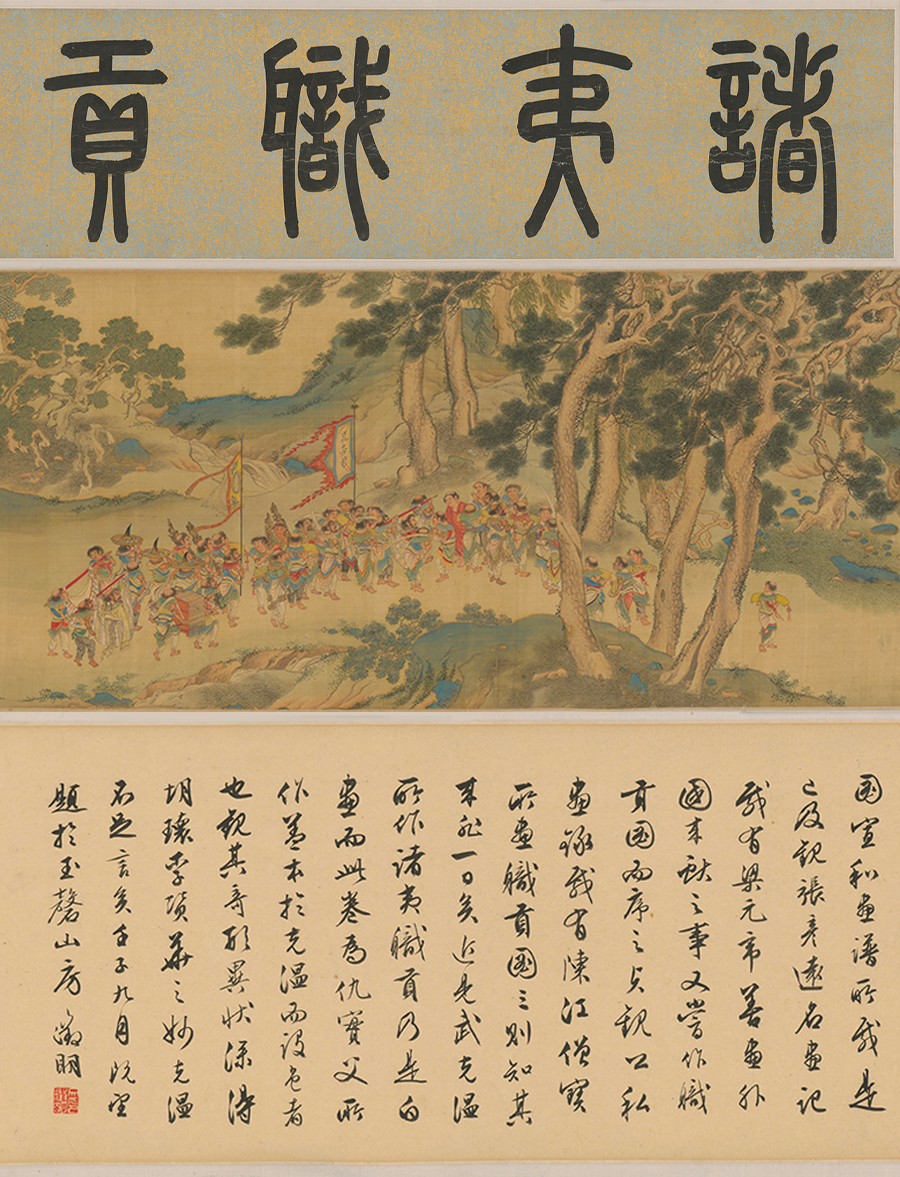 諸夷職貢
圖宣和畫譜所載是
已及觀張彥遠名畫記
載有梁元帝善畫外
國來獻之事又嘗作職
貢圖而序之貞觀公私
畫錄載有陳江僧寶
所畫職貢圖三則知其
來非一日矣近見武克溫
所作諸夷職貢乃是白
畫而此卷為仇實父所
作蓋本於克溫而設色者
也觀其奇形異狀深得
胡瓌李贊華之妙克溫
不足言矣壬子九月既望
題於玉磬山房 徵明